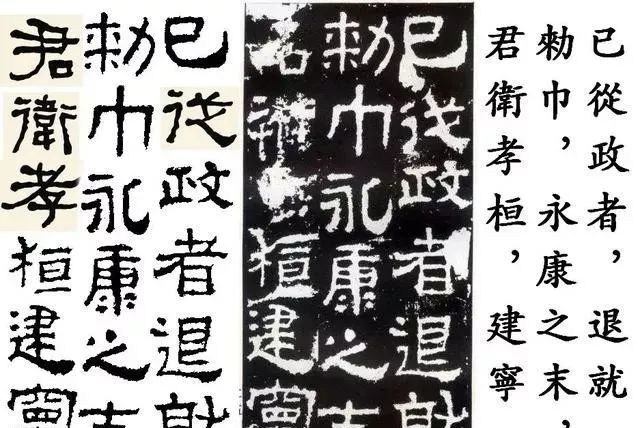 已從政者，退就
勅巾，永康之末，
君衛孝桓，建寧
已從政者退就
勅巾永康之末
君衛孝桓建寧
已從政者退就
勅巾永康之末
君衛孝桓建寧